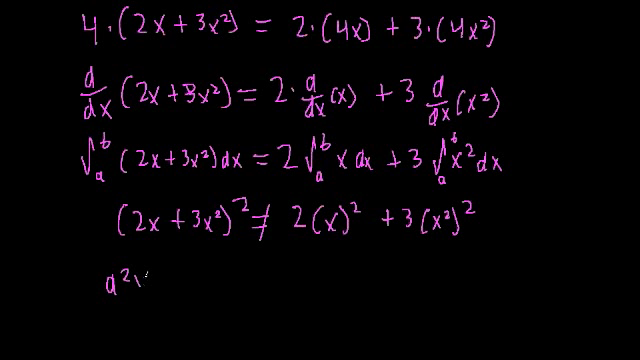 4·(2x+3x²) = 2·(4x) + 3·(4x²)
d/dx (2x+3x²) = 2·d/dx(x) + 3 d/dx(x²)
∫ₐᵇ (2x+3x²)dx = 2∫ₐᵇ x dx + 3∫ₐᵇ x² dx
(2x+3x²)² ≠ 2(x)² + 3(x²)²
a²